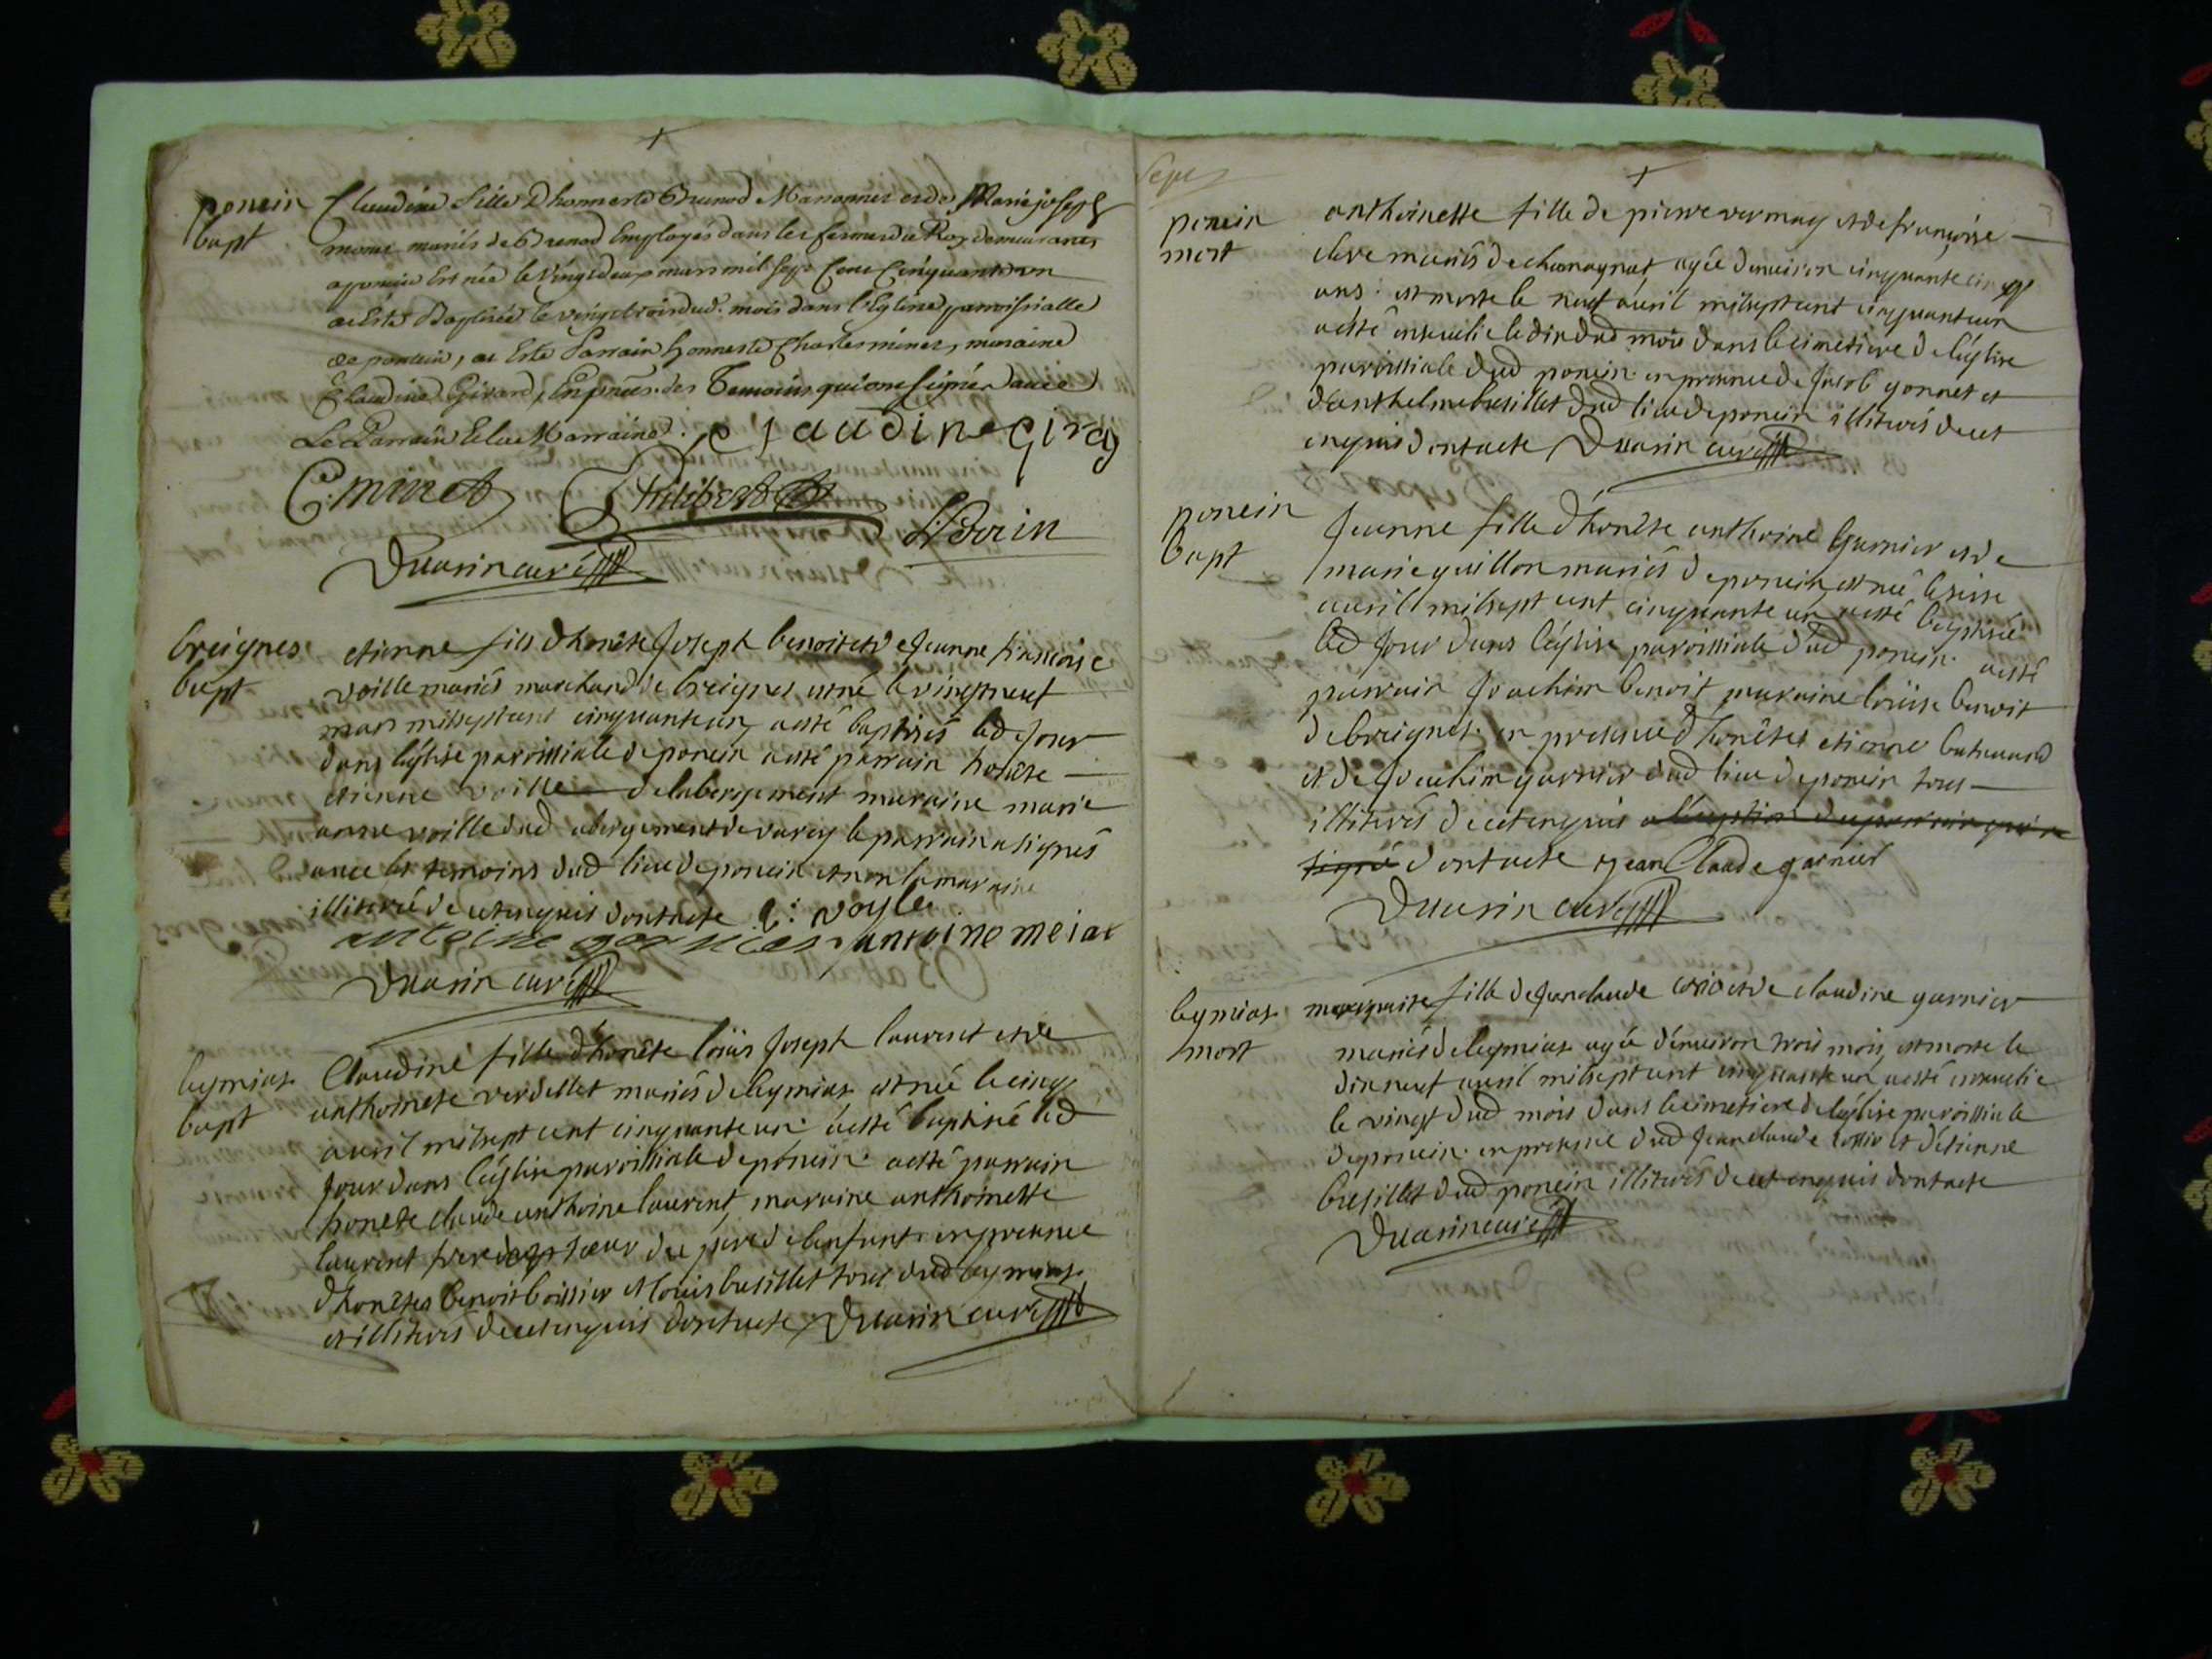 poncin
bapt
Claudine fille D'honneste Brunod et de Marie joseph
mariés de Brenod Employés dans les fermes du Roy demeurants
a poncin Est née le vingt deux mars mil sept Cent Cinquante un
a Esté Baptisée le vingt trois dud. mois dans l'Eglise parroissialle
de poncin, a Esté Parrain honneste Charles minet, maraine
Claudine Girard, En présce. des Temoins qui ont signés avec
Le Parrain Et la Marraine. claudine girar
C. minet Philibert
Duarin curé
breignes
bapt
etienne fils d'honête Joseph benoit et de Jeanne francoise
voille mariés marchand de breignes est né le vingtneuf
mars milseptcent cinquante un a esté baptisés led Jour
dans l'église paroissiale de poncin a esté parrain honête
etienne voille de labergement maraine marie
anne voille dud abergement de varey le parrain a signés
avec les temoins dud lieu de poncin et non la maraine
illiterée de ce enquis dont acte E: voyle
antoine garnier antoine meiat
Duarin curé
leymiat
bapt
Claudine fille d'honête loüis Joseph laurent et de
anthoinete verdellet mariés de leymiat est née le cinq
avril milsept cent cinquante un a esté baptisé led
Jour dans l'église paroissiale de poncin a esté parrain
honete claude anthoine laurent, maraine anthoinette
laurent frere et soeur du pere de lenfant en presence
d'honêtes benoit boissier et louis busillet tous dud leymiat
et illiterés de ce enquis dont acte Duarin curé
poncin
mort
anthoinette fille de pierre vermay et de françoise
clere mariés de chavagnat agée d'environ cinquante cinq
ans est morte le neuf avril milseptcent cinquanteun
a esté ensevelie le dix dud mois dans le cimetiere de l'église
paroissiale dud poncin en presence de Jacob gonnet et
d'anthelme busillet dud lieu de poncin illiterés de ce
enquis dont acte Duarin curé
poncin
bapt
Jeanne fille d'honête anthoine Garnier et de
marie guillon mariés de poncin est née le seise
avril milsept cent cinquante un a esté baptisée
led Jour dans l'église paroissiale dud poncin a esté
parrain Joachim benoit maraine loüise benoit
de breignes en presence d'honêtes etienne
et de Joachim garnier dud lieu de poncin tous
illiterés de ce enquis a l'exeption du parrain qui a
signé dont acte jean Claude garnier
Duarin curé
leymiat
mort
marguerite fille de Jeanclaude et de claudine garnier
mariés de leymiat agée d'environ trois mois est morte le
dix neuf avril milsept cent cinquante un a esté ensevelie
le vingt dud mois dans le cimetiere de l'église paroissiale
de poncin en presence dud Jeanclaude et d'etienne
busillet dud poncin illiterés de ce enquis dont acte
Duarin curé